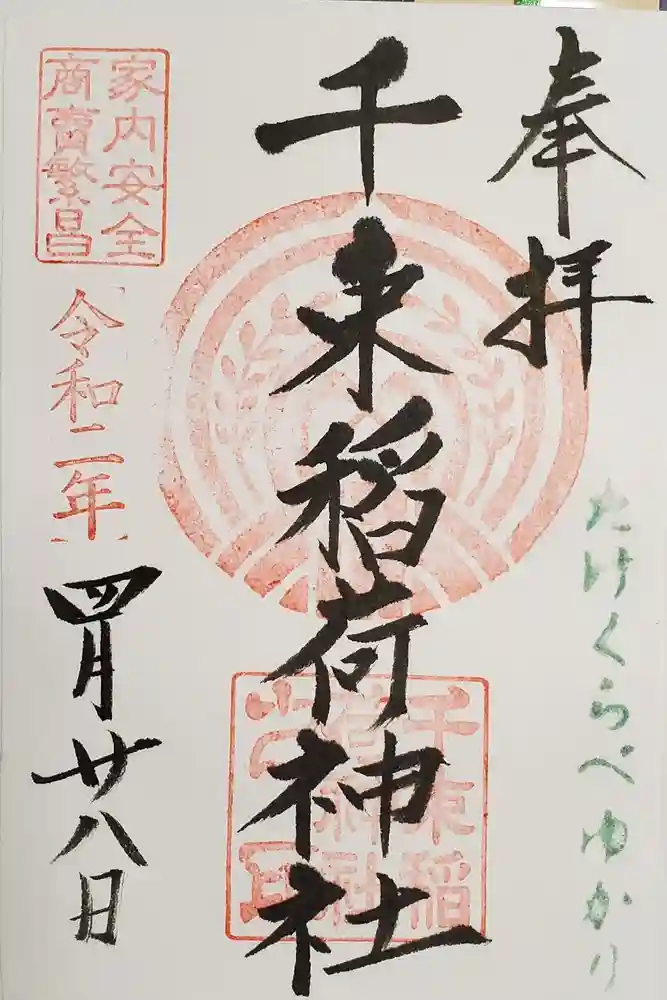 奉拝
たけくらべゆかり
千束稲荷神社
千束稲
荷神社
之印
家内安全
商賣繁昌
令和二年
四月廿八日